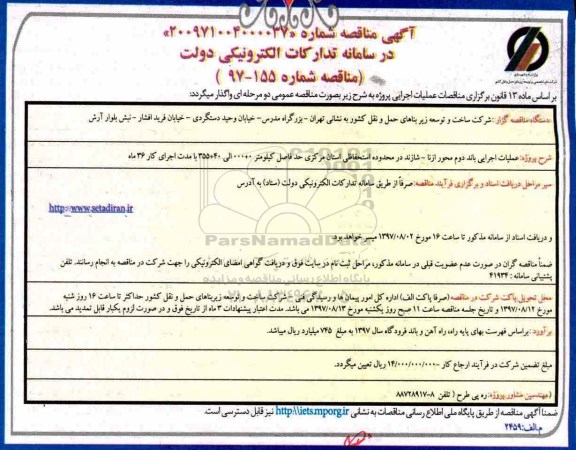 آگهی مناقصه شماره «۲۰۰۹۷۱۰۰۴۰۰۰۰۳۷»
در سامانه تدارکات الکترونیکی دولت
(مناقصه شماره ۱۵۵-۹۷ )
بر اساس ماده ۱۳ قانون برگزاری مناقصات عملیات اجرایی پروژه به شرح زیر بصورت مناقصه عمومی دو مرحله ای واگذار میگردد:
دستگاه مناقصه گزار: شرکت ساخت و توسعه زیر بناهای حمل و نقل کشور به نشانی تهران - بزرگراه مدرس- خیابان وحید دستگردی - خیابان فرید افشار - نبش بلوار آرش
شرح پروژه: عملیات اجرایی باند دوم محور ازنا - شازند در محدوده استحفاظی استان مرکزی حد فاصل کیلومتر ۰۰۰+۰ الی ۳۵۵۰۴۰ با مدت اجرای کار ۳۶ ماه
سیر مراحل دریافت اسناد و برگزاری فرآیند مناقصه: صرفاً از طریق سامانه تدارکات الکترونیکی دولت (ستاد) به آدرس
http://www.setadiran.ir
و دریافت اسناد از سامانه مذکور تا ساعت ۱۶ مورخ ۱۳۹۷/۰۸/۰۲ میسر خواهد بود.
ضمناً مناقصه گران در صورت عدم عضویت قبلی در سامانه مذکور، مراحل ثبت نام در سایت فوق و دریافت گواهی امضای الکترونیکی را جهت شرکت در مناقصه به انجام رسانند. تلفن
پشتیبانی سامانه : ۴۱۹۳۴
محل تحویل پاکت شرکت در مناقصه (صرفا پاکت الف) اداره کل امور پیمان ها و رسیدگی فنی - شرکت ساخت و توسعه زیربناهای حمل و نقل کشور حداکثر تا ساعت ۱۶ روز شنبه
مورخ ۱۳۹۷/۰۸/۱۲ و تاریخ جلسه مناقصه ساعت ۱۱ صبح روز یکشنبه مورخ ۱۳۹۷/۰۸/۱۳ می باشد. مدت اعتبار پیشنهادات ۳ ماه از تاریخ فوق و در صورت لزوم یکبار قابل تمدید می باشد.
برآورد: براساس فهرست بهای پایه راه، راه آهن و باند فرودگاه سال ۱۳۹۷ به مبلغ ۷۴۵ میلیارد ریال میباشد.
مبلغ تضمین شرکت در فرآیند ارجاع کار ۱۴/۰۰۰/۰۰۰/۰۰۰- ریال تعیین میگردد.
(مهندسین مشاور پروژه: ره پی طرح ( تلفن ۸-۸۸۷۲۸۹۱۷
ضمناً آگهی مناقصه از طریق پایگاه ملی اطلاع رسانی مناقصات به نشانی http:\\iets.mporg.ir نیز قابل دسترسی است.
م.الف: ۲۴۵۹
ParsNamadData
پایگاه اطلاع رسانی مناقصه و مزایده